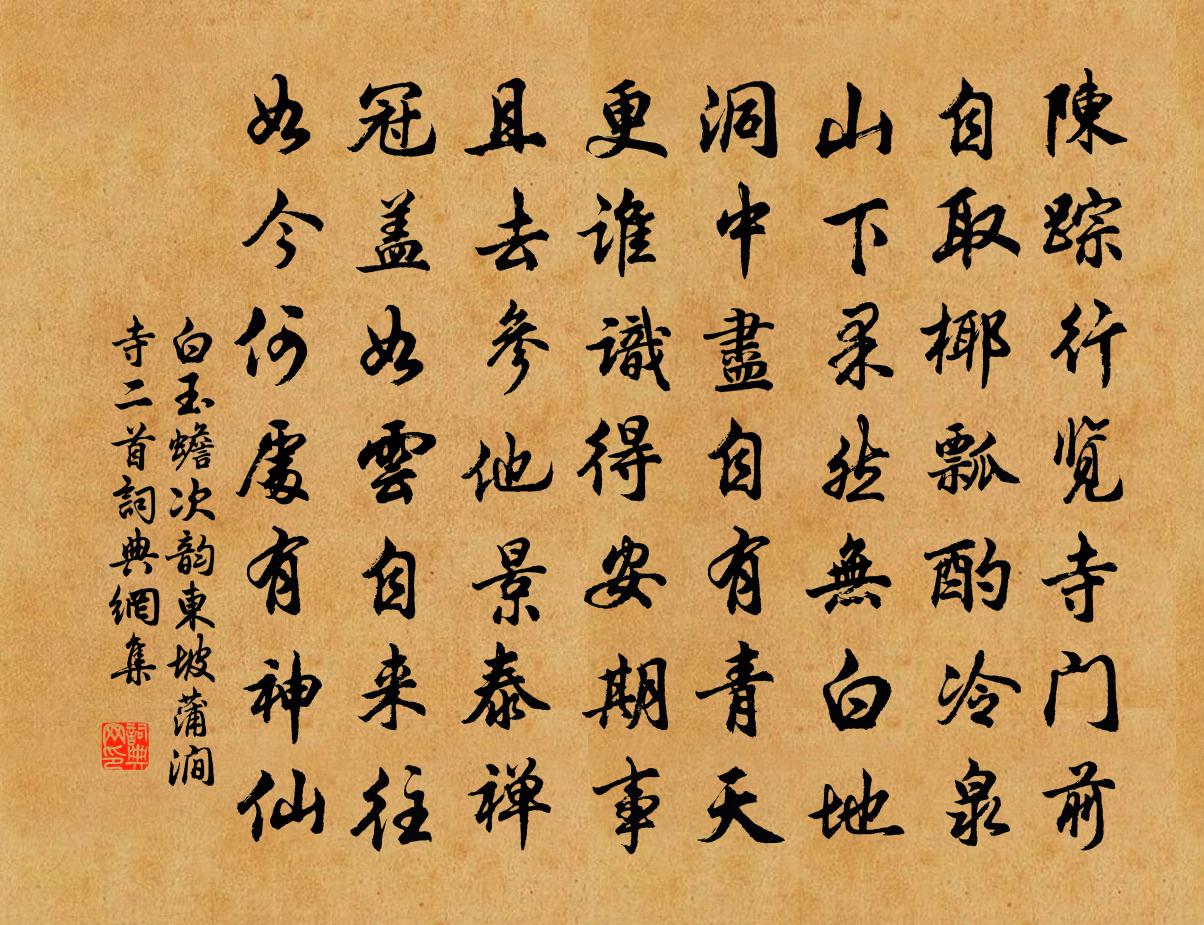 陳踪行览寺门前
自取椰瓢酌冷泉
山下果然無白地
洞中盡自有青天
更誰識得安期事
且去參他景泰禅
冠盖如雲自来往
如今何處有神仙
白玉蟾次韵東坡蒲澗
寺二首詞典網集
詞典
网印